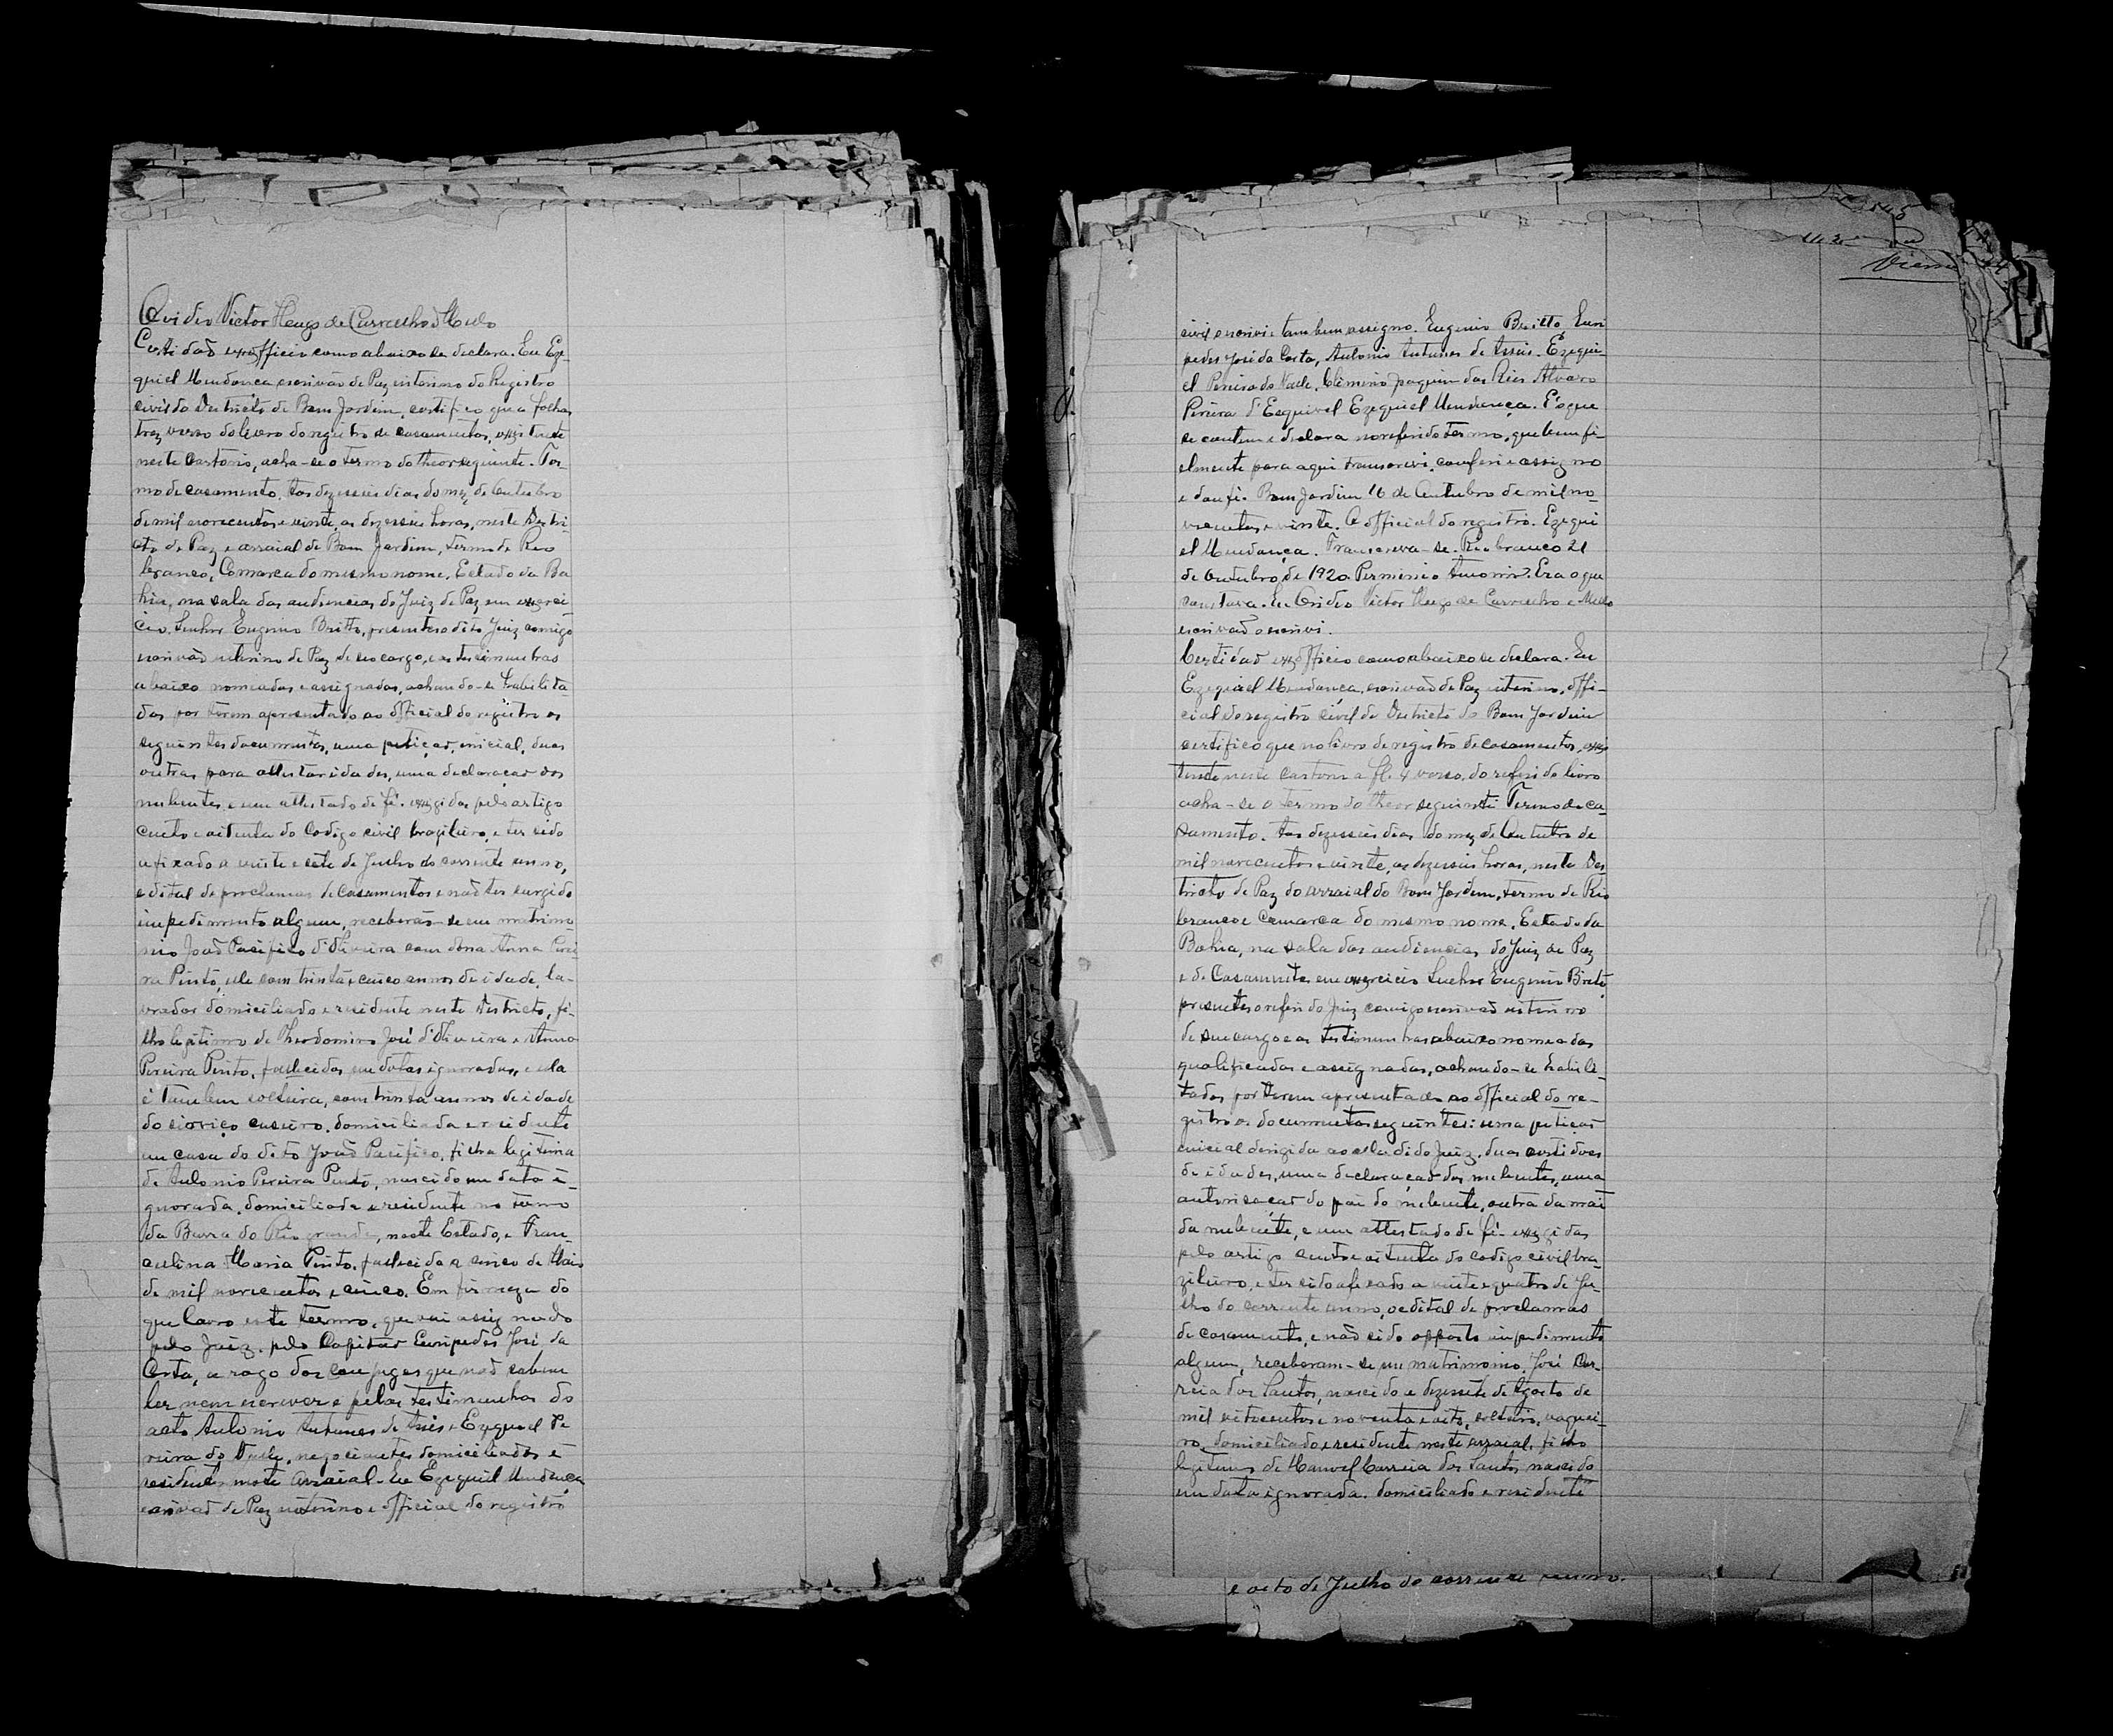 Ovidio Victor Hugo de Carvalho e Mello
Certidaõ exofficio como abaixo se declara. Eu Eze-
quiel Mendonca escrivão de Paz interino do Registro
civil do Districto de Bom Jardim, certifico que a folhas
trez verso do livro do registro de casamentos, existente
neste Cartorio, acha-se o termo do theor seguinte. Ter-
mo de casamento. Aos dezesseis dias do mez de Outubro
de mil novecentos e vinte, as dezesseis horas, neste Destri-
cto de Paz e arraial de Bom Jardim, termo de Rio
branco, Comarca do mesmo nome, Estado da Ba
hia, na sala das audiencias do Juiz de Paz em exerci
cio. Senhor Eugenio Britto, presentes o dito Juiz comigo
escrivaõ interino de Paz de seo cargo, e as testimunhas
abaixo nomeadas e assignadas, achando-se habilita
dos por terem apresentado ao official do registro os
seguintes documentos, uma petiçaõ, inicial, duas
outras para attestar idades, uma declaraçaõ dos
nubentes, e um attestado de fé. exigidos pelo artigo
cento e oitenta do Codigo civil brazileiro, e ter sido
afixado a vinte e sete de Julho do corrente anno,
edital de proclamas de casamentos e naõ ter surgido
impedimento algum, receberaõ-se em matrimo
nio Joaõ Pacifico d'Oliveira com dona Anna Perei
ra Pinto, ele com trinta e cinco annos de idade, la-
vrador domiciliado e residente neste Destricto, fi-
lho legitimo de Theodomiro José d'Oliveira e Anna
Pereira Pinto, fallecidos em datas ignoradas, e ela
é tambem solteira, com trinta annos de idade
do sirviço caseiro, domiciliada e residente
em casa do dito Joaõ Pacifico, filha legitima
de Antonio Pereira Pinto, nascido em data i-
gnorada, domiciliado e residente no termo
da Barra do Rio grande, neste Estado, e Fran-
celina Maria Pinto, fallecida a cinco de Maio
de mil novecentos e cinco. Em firmeza do
que lavro este termo, que vai assignado
pelo Juiz. pelo Capitaõ Euripedes José da
Costa, a rogo dos conjuges que naõ sabem
ler nem escrever e pelas testimunhas do
acto Antonio Antunes de Assis e Ezequiel Pe
reira do Valle, negociantes domiciliados e
residentes neste arraial. Eu Ezequiel Mendonca
escrivaõ de Paz interino e official do registro
civil escrivi e tambem assigno. Eugenio Britto, Euri
pedes José da Costa, Antonio Antunes de Assis. Ezequi
el Pereira do Valle. Clemirio Joaquim dos Reis Alvaro
Pereira d'Esquivel Ezequiel Mendonça. É o que
se contem e declara no referido termo, que bem fi-
elmente para aqui transcrevi, conferi e assigno
e dou fé. Bom Jardim 16 de Outubro de mil no-
vecentos e vinte. O official do registro. Ezequi
el Mendonça. Transcreva-se. Rio branco 21
de Outubro de 1920. Era o que
constava. Eu Ovidio Victor Hugo de Carvalho e Mello
escrivaõ escrivi.
Certidaõ exofficio como abaixo se declara. Eu
Ezequiel Mendonca, escrivaõ de Paz interino, offi-
cial do registro civil do Districto do Bom Jardim
certifico que no livro de registro de casamentos, exis
tente neste cartorio a fl. 4 verso, do referido livro
acha-se o termo do theor seguinte Termo de ca-
samento. Aos dezesseis dias do mez de Outubro de
mil novecentos e vinte, as dezesseis horas, neste Des
tricto de Paz do arraial do Bom Jardim, termo de Rio
branco e Comarca do mesmo nome, Estado da
Bahia, na sala das audiencias do Juiz de Paz
e de Casamentos em exercicio Senhor Eugenio Britto
presentes o referido Juiz comigo escrivaõ interino
de seu cargo e as testimunhas abaixo nomeadas
qualificadas e assignadas, achando-se habile-
tados por terem apresentado ao official do re-
gistro os documentos seguintes: uma petiçaõ
inicial dirigida ao alludido Juiz, duas certidoes
de idades, uma declaraçaõ dos nubentes, uma
autorisaçaõ do pai do nubente, outra da mãi
da nubente, e um attestado de fé. exigidas
pelo artigo cento e oitenta do codigo civil bra-
zileiro, e ter sido afixado a vinte e quatro de Ju-
lho do corrente anno, o edital de proclamas
de casamento, e não sido opposto impedimento
algum, receberam-se em matrimonio, José Cor-
reia dos Santos, nascido a dezessete de Agosto de
mil oitocentos e noventa e oito, solteiro, vaquei-
ro, domiciliado e residente neste arraial, filho
legitimo de Manoel Correia dos Santos, nascido
em data ignorada, domiciliado e residente
e oito de Julho do corrente anno.